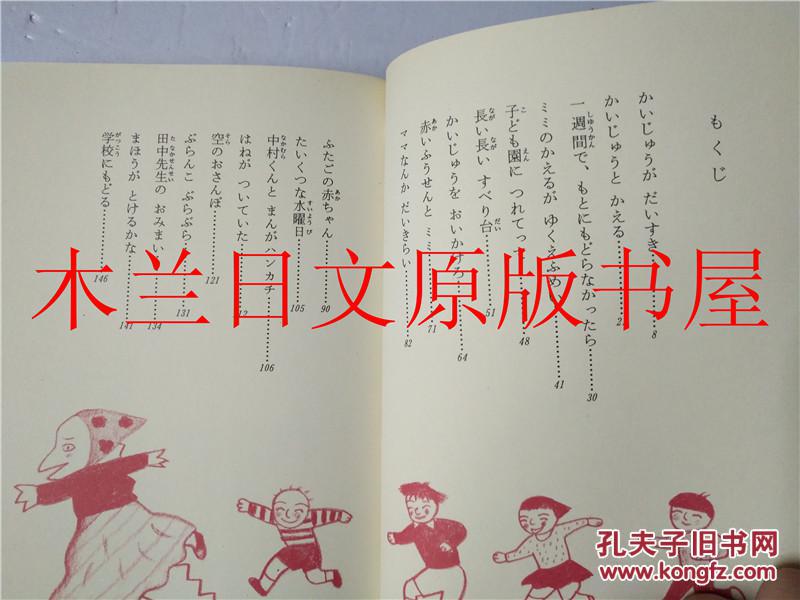 もくじ
かいじゅうが だいすき………8
かいじゅうと かえる………2
一週間で、もとにもどらなかったら………30
ミミのかえるが ゆくえふめい………41
子ども園に つれてって………48
長い長い すべり台………51
かいじゅうを おいかけろ………64
赤いふうせんと ミミ………71
ママなんか だいきらい………82
ふたごの赤ちゃん………90
たいくつな水曜日………105
中村くんと まんがハンカチ………106
はねが ついていた………12
空のおさんぽ………121
ぶらんこ ぶらぶら………131
田中先生の おみまい………134
まほうが とけるかな………141
学校にもどる………146
木兰日文原版书屋
孔夫子旧书网
www.kongfz.com